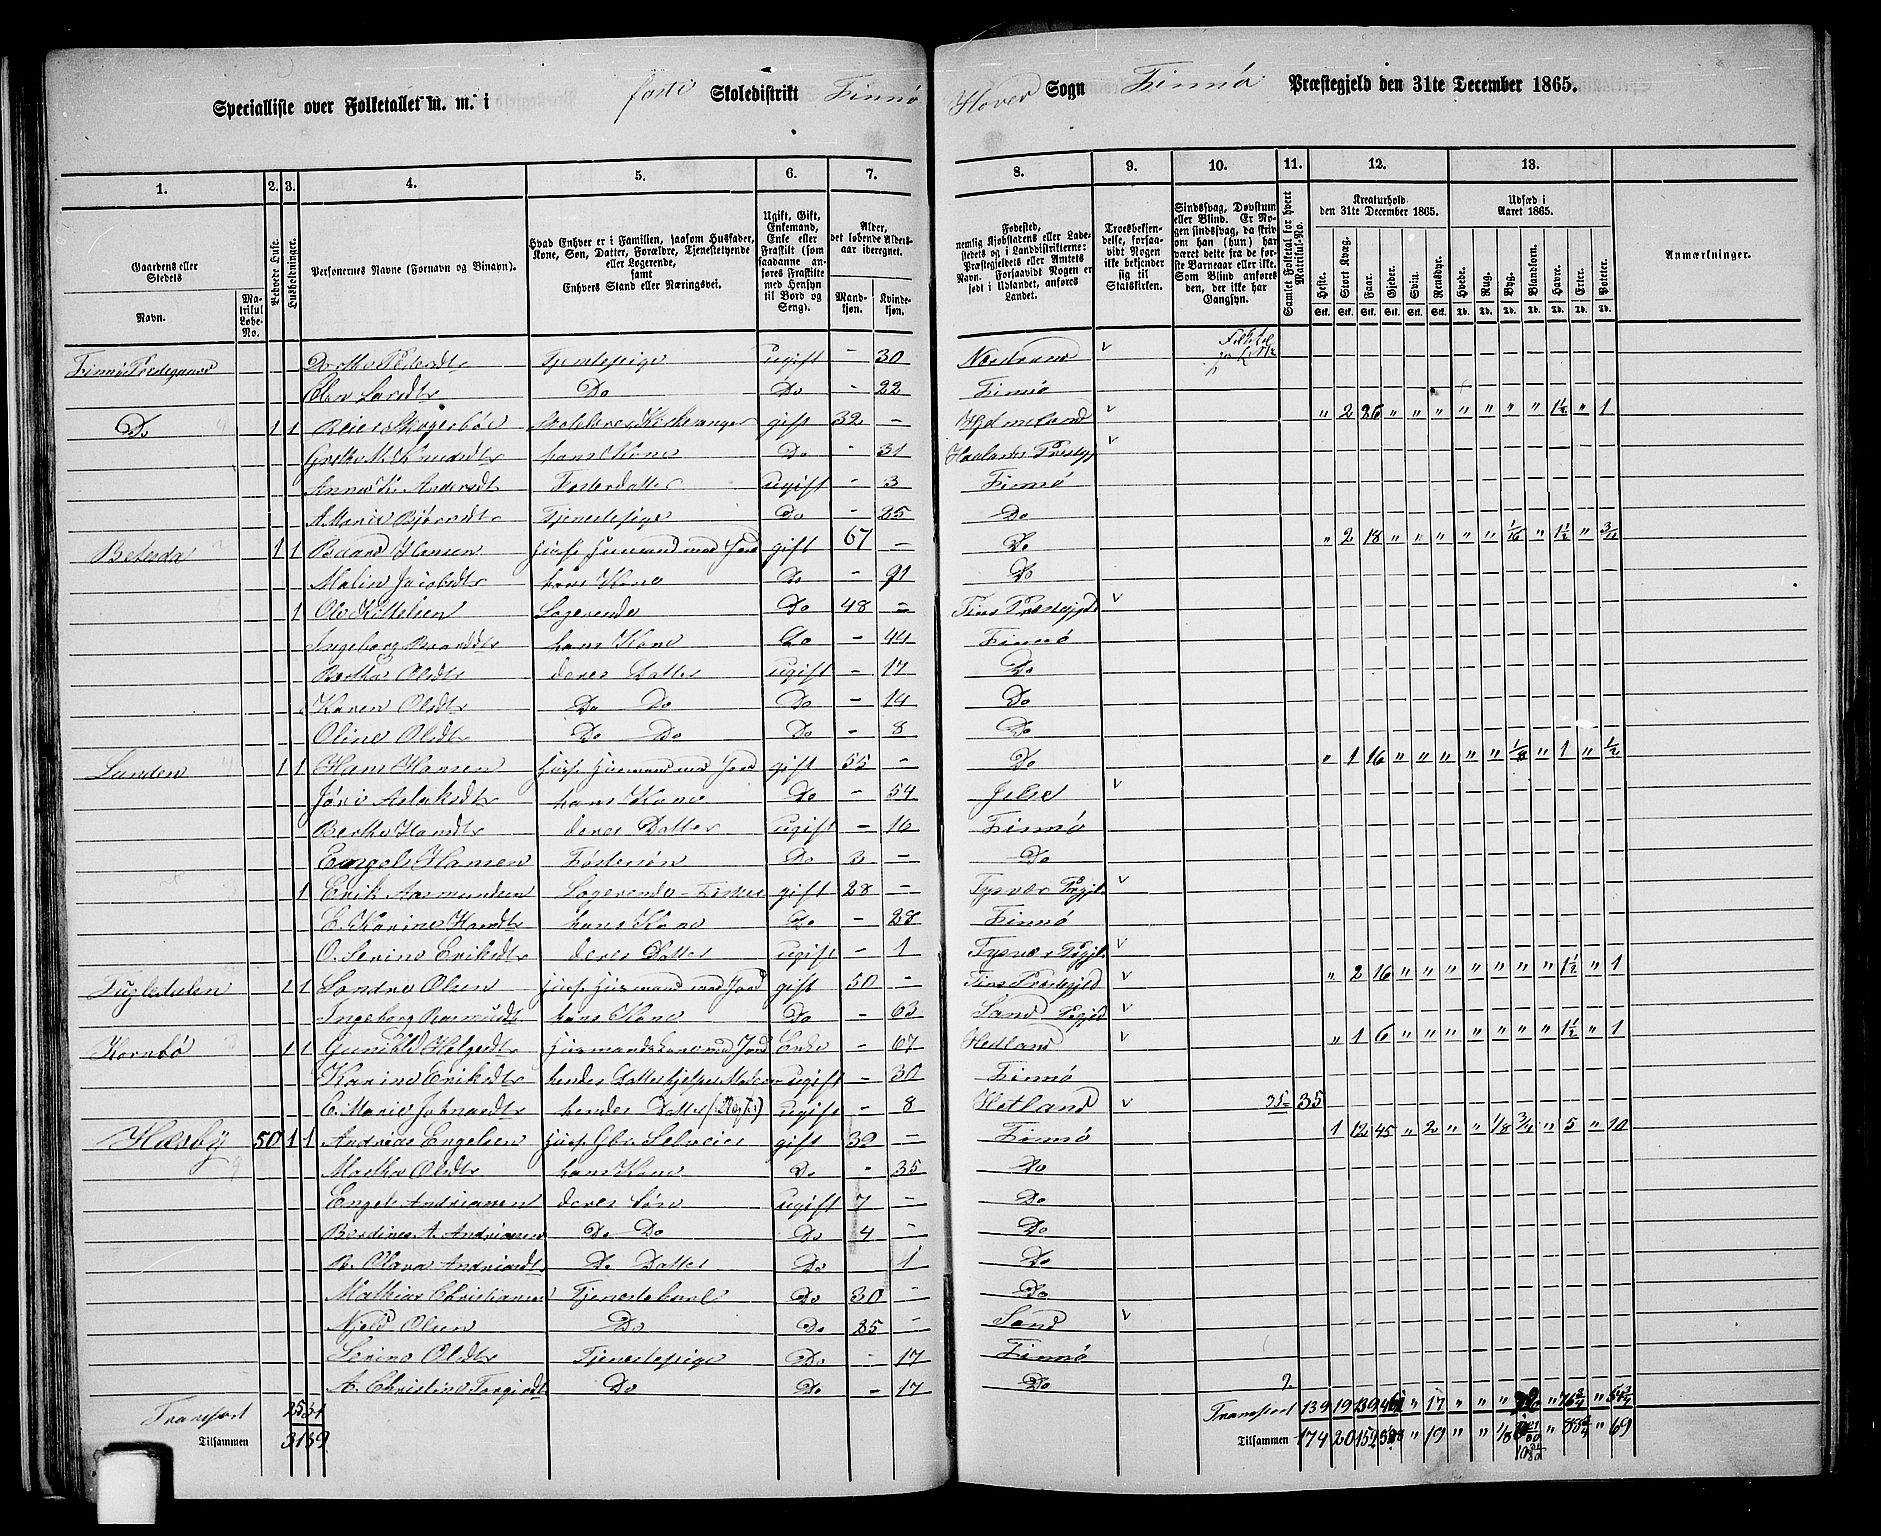 Specialliste over Folketallet m. m. i første Skoledistrikt Finnø
Hoved Sogn Finnø Præstegjeld den 31te December 1865.
1. 2. 3. 4. 5. 6. 7. 8. 9. 10. 11. 12. 13.
Gaardens eller Stedets
Navn.
Matrikul Løbe-No.
Beboede Huse.
Husholdninger.
Personernes Navne (Fornavn og Binavn).
Hvad Enhver er i Familien, saasom Husfader, Kone, Søn, Datter, Forældre, Tjenestetyende eller Logerende, samt Enhvers Stand eller Næringsvei.
Ugift, Gift, Enkemand, Enke eller Fraskilt (som saadanne anføres Fraskilte med Hensyn til Bord og Seng).
Alder, det løbende Aldersaar iberegnet.
Mandkjøn. Kvindekjøn.
Fødested, nemlig Kjøbstadens eller Ladestedets og i Landdistrikterne: Præstegjeldets eller Amtets Navn. Forsaavidt Nogen er født i Udlandet, anføres Landet.
Troesbekjendelse, forsaavidt Nogen ikke bekjender sig til Statskirken.
Sindssvag, Døvstum eller Blind. Er Nogen sindssvag, da skriv om han (hun) har været dette fra de første Barneaar eller ikke. Som Blind anføres den, der ikke har Gangsyn.
Samlet Folketal for hvert Matrikul-No.
Kreaturhold den 31te December 1865.
Heste. Stort Kvæg. Faar. Gjeder. Sviin. Rensdyr.
Udsæd i Aaret 1865.
Hvede. Rug. Byg. Blandkorn. Havre. Erter. Poteter.
Anmærkninger.
Finnø Prestegaard Dorthe Pedersdtr Tjenestepige ugift - 30 v
Olsdtr Do Do - 22 Finnø
Do 1 1 Skolelærer Kirkesanger gift 32 - Hjelmeland v " 2 26 " " " " " " " 1½ " 1
Grethe M. Knudsdtr hans Kone Do - 31 v
Anna Andersdtr Fosterdatter ugift - 3 Finnø
A Marie Bjørnsdtr Tjenestepige Do - 25 Do
Betesda 1 1 Baard Hansen Husf. Husmand med Jord gift 67 - Do " 2 18 " " " " " 1/16 " 1½ "
Malin Jacobsdtr hans Kone Do - Do
1 Ole Kittelsen Logerende Do 48 - v
Ingeborg Baardsdtr hans Kone Do - 44 Finnø
Bertha Olsdtr deres Datter ugift - 17 Do
Karen Olsdtr Do Do Do - 14 Do
Oline Olsdtr Do Do Do - 8 Do
Sanden 1 1 Hans Hansen Husf. Husmand med Jord gift 55 - Do " 1 16 " " " " " 1/8 " 1 " ½
Jøri Aslaksdtr hans Kone Do - 54 Jelse v
Berthe Hansdtr deres Datter ugift - 16 Finnø
Engel Hansen Fostersøn Do 3 - Do
1 Erik Asmundsen Logerende - Fisker gift 28 - Tysvær Prgjld v
E. Karine Hansdtr hans Kone Do - 28 Finnø
O. Serine Eriksdtr deres Datter ugift - 1 Tysvær Prgjld v
Fugledalen 1 1 Sondre Olsen Husf. Husmand med Jord gift 50 - v " 2 16 " " " " " " " 1½ " 1
Ingeborg Rasmusdtr hans Kone Do - 63 Sand Prgjld v
Kornbø 1 1 Gunild Helgesdtr Husmandskone med Jord Enke - 67 Hetland v " 1 6 " " " " " " " 1½ " 1
Karine Eriksdtr hendes Datter hjelper Moderen ugift - 30 Finnø
E. Marie Johnsdtr hendes Datter ugift - 8 Hetland v 35 35
Hæsbø 50 1 1 Andreas Engelsen Husf. Gbr. Selveier gift 39 - Finnø 1 12 45 " 2 " " 1/8 3/4 " 5 " 10
Martha Olsdtr hans Kone Do - 35 Do
Engel Andreasen deres Søn ugift 7 - Do
Berdines A. Andreasen Do Do Do 4 - Do
B. Olava Andreasdtr Do Datter Do 1 Do
Mathias Christiansen Tjenestekarl Do 30 - Do
Njeld Olsen Do Do 25 - Sand v
Serine Olsdtr Tjenestepige Do - 17 Finnø
A. Christine Torgersdtr Do Do - 17 Do
Transport 25 31
Tilsammen 31 39
Transport 139 19 139 " 17 " " " " 76¾ " 54¾
Tilsammen 174 20 " 19 " " 1/8 " 88¾ " 69